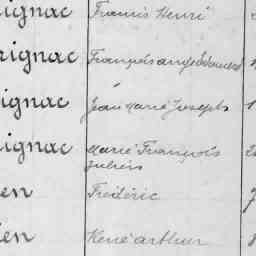 ignac Francis Henri
rignac François ange Edouard
ignac Jean Marie Joseph
rignac Marie François
Julien
en Frédéric
ien René arthur